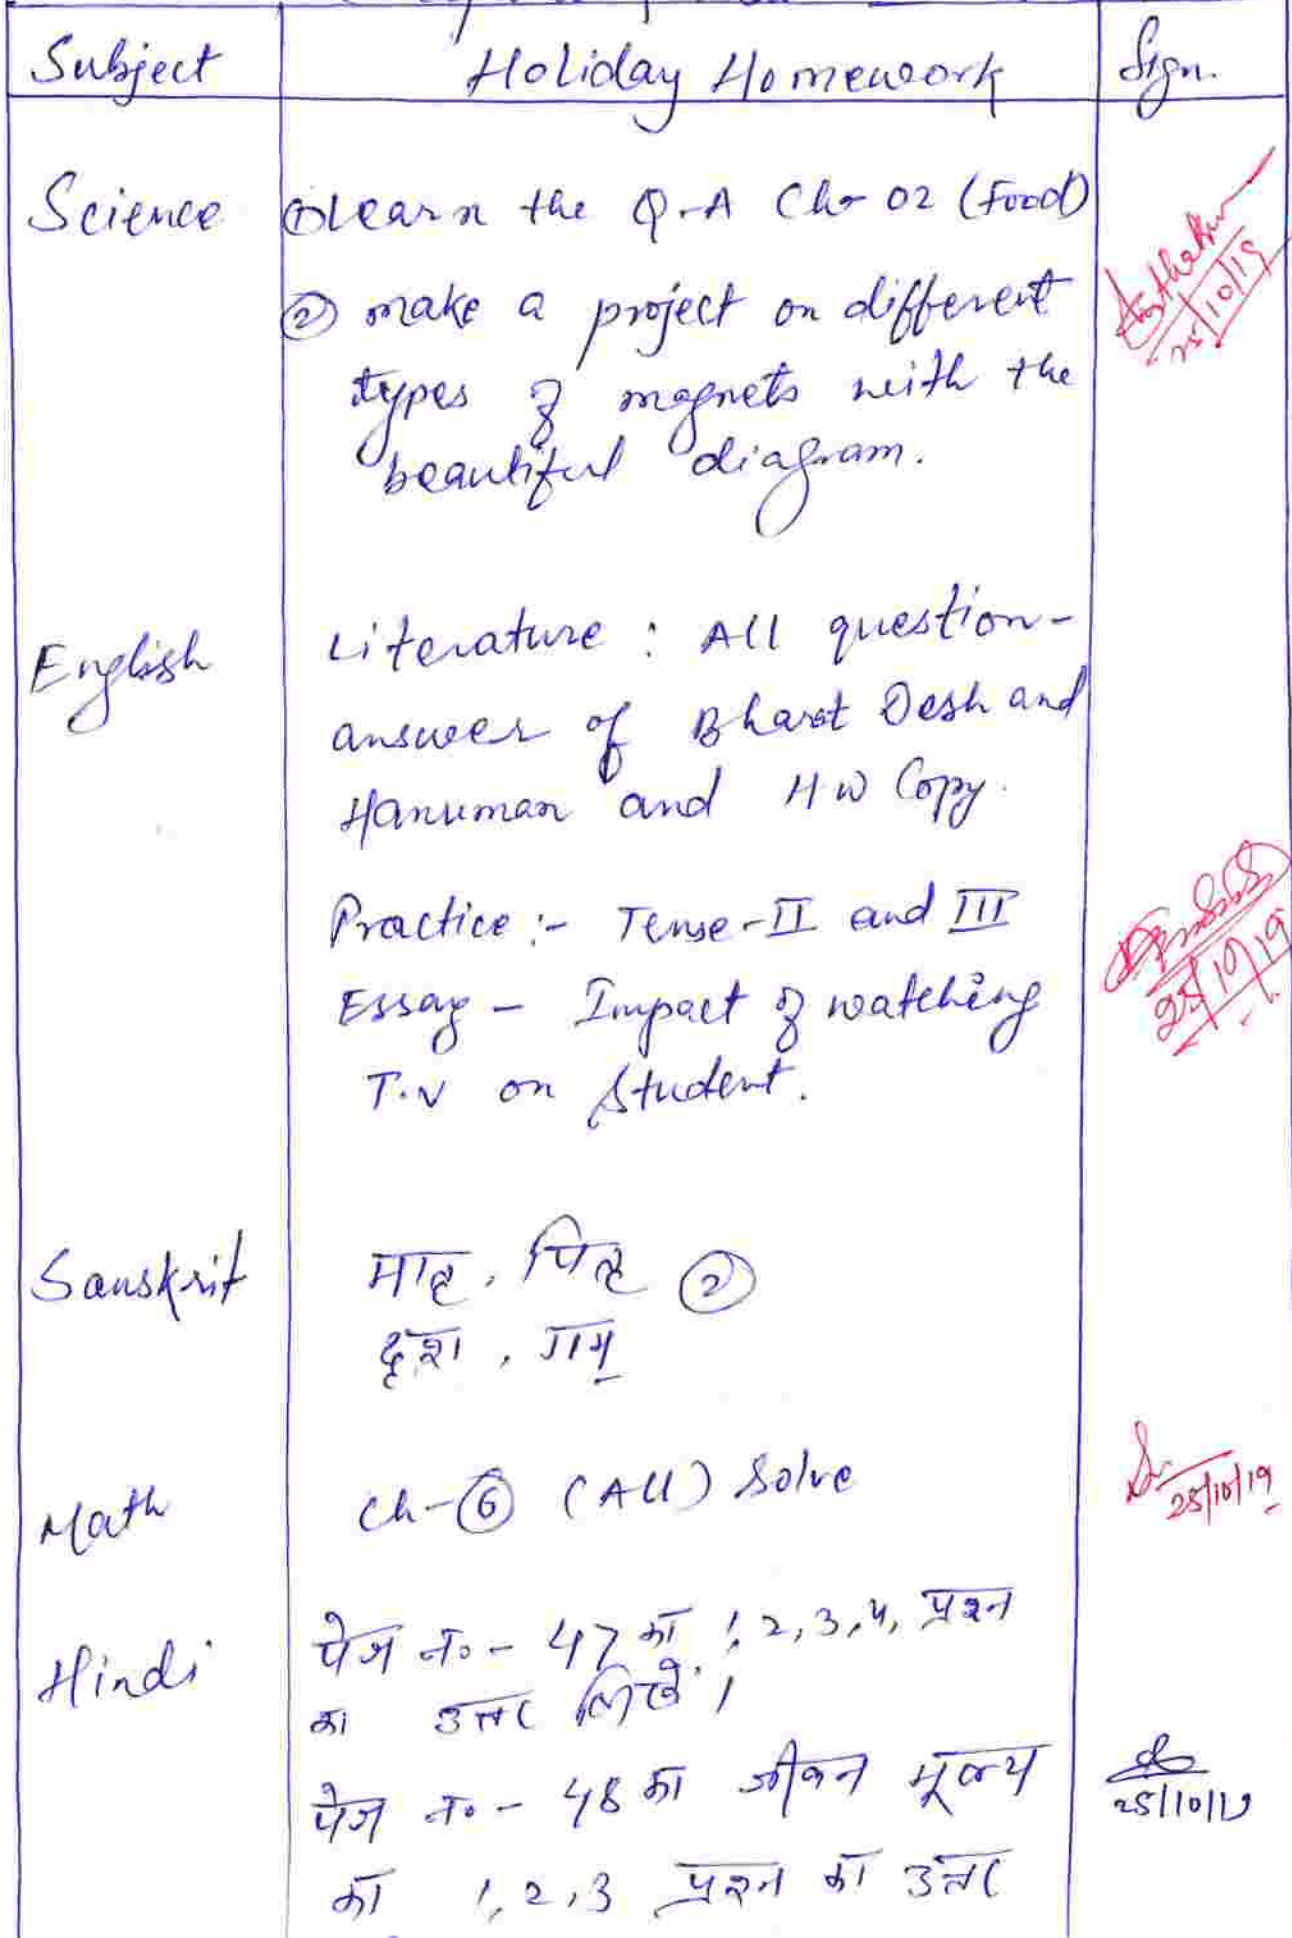 Subject Holiday Homework Sign.
Science ① Learn the Q-A Ch-02 (Food)
② make a project on different
types of magnets with the
beautiful diagram.
25/10/19
English Literature : All question-
answer of Bharat Desh and
Hanuman and H.W Copy.
Practice :- Tense-II and III
Essay - Impact of watching
T.V on Student.
25/10/19
Sanskrit मातृ, पितृ ②
दृश, गम्
Math Ch-⑥ (All) Solve
25/10/19
Hindi पेज न०- 47 का 1,2,3,4, प्रश्न
का उत्तर लिखें।
पेज न०- 48 का जीवन मूल्य
का 1,2,3 प्रश्न का उत्तर
25/10/19